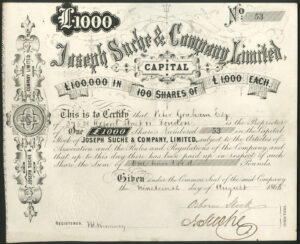 £1000
No. 53
Joseph Suche & Company Limited,
CAPITAL
£100,000 IN 100 SHARES OF £1000 EACH
This is to Certify that Peter Graham Esq
of Regent Street London is the Proprietor
of One £1000 Share Numbered 53 in the Capital
Stock of JOSEPH SUCHE & COMPANY, LIMITED, subject to the Articles of
Association and the Rules and Regulations of the Company and
that up to this day there has been paid up in respect of such
Share the sum of One Hundred Pounds.
Given under the Common Seal of the said Company
the Nineteenth day of August 186
REGISTERED